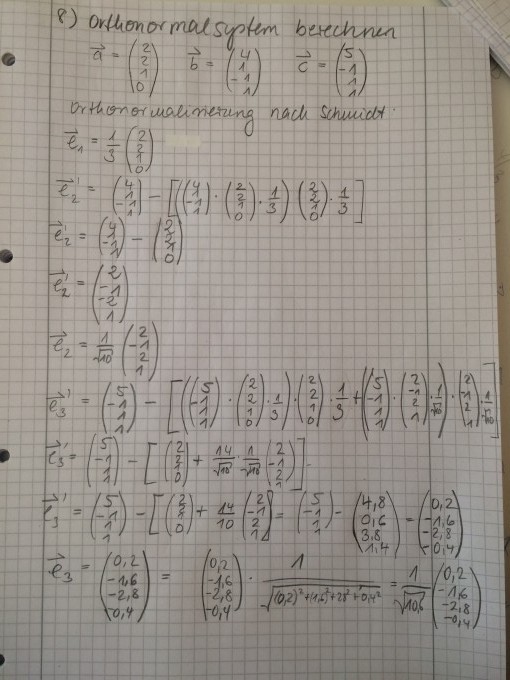 8) Orthonormalsystem berechnen
a⃗ = (2 2 1 0) b⃗ = (4 1 -1 1) c⃗ = (5 -1 1 1)
Orthonormalisierung nach Schmidt:
e⃗₁ = 1/3 (2 2 1 0)
e⃗₂' = (4 1 -1 1) - [((4 1 -1 1) · (2 2 1 0) · 1/3) (2 2 1 0) · 1/3]
e⃗₂' = (4 1 -1 1) - (2 2 1 0)
e⃗₂' = (2 -1 -2 1)
e⃗₂ = 1/√10 (2 -1 2 1)
e⃗₃' = (5 -1 1 1) - [((5 -1 1 1) · (2 2 1 0) · 1/3) · (2 2 1 0) · 1/3 + ((5 -1 1 1) · (2 -1 2 1) · 1/√10) · (2 -1 2 1) · 1/√10]
e⃗₃' = (5 -1 1 1) - [(2 2 1 0) + 14/√10 · 1/√10 (2 -1 2 1)]
e⃗₃' = (5 -1 1 1) - [(2 2 1 0) + 14/10 (2 -1 2 1)] = (5 -1 1 1) - (4,8 0,6 3,8 1,4) = (0,2 -1,6 -2,8 -0,4)
e⃗₃ = (0,2 -1,6 -2,8 -0,4) = (0,2 -1,6 -2,8 -0,4) · 1/√((0,2)²+(1,6)²+2,8²+0,4²) = 1/√10,6 (0,2 -1,6 -2,8 -0,4)